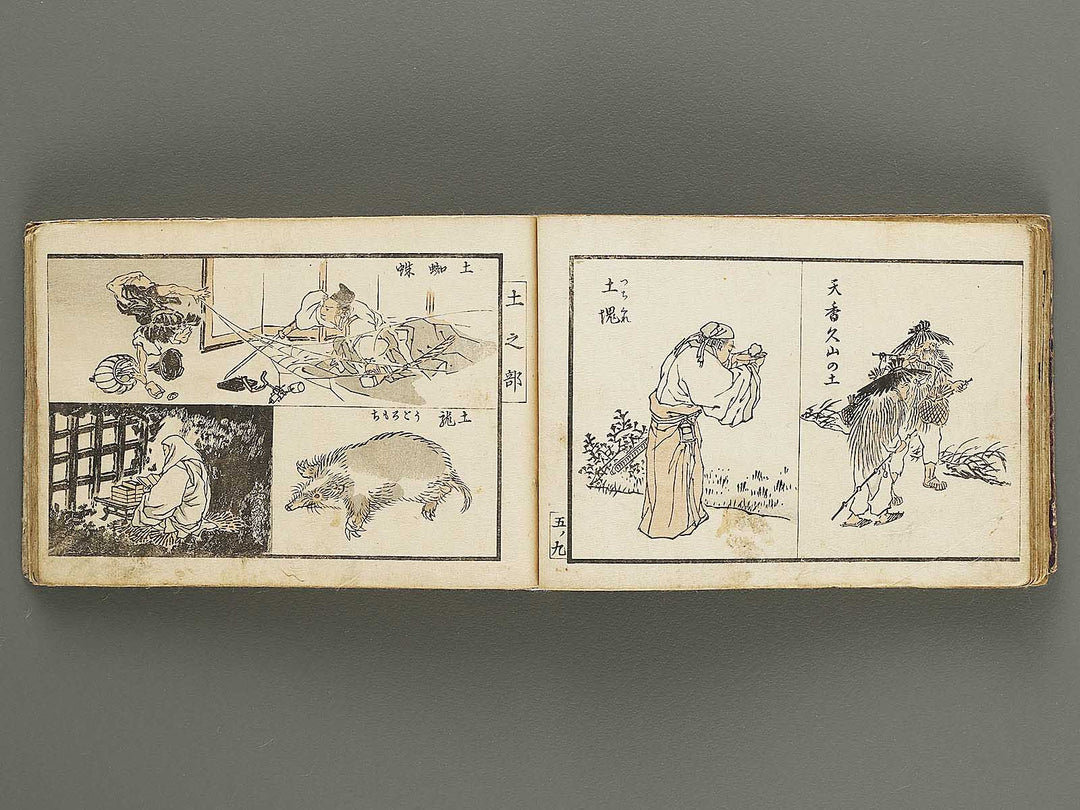 天香久山の土
つちくれ
土塊
五ノ九
土之部
土蜘蛛
土龍
うごろもち